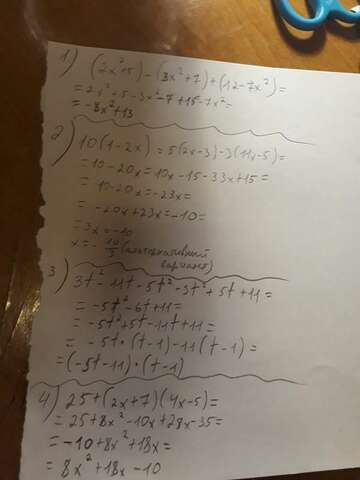 1) (2x²+5) - (3x²+7) + (12-7x²) =
= 2x² + 5 - 3x² - 7 + 15 - 7x² =
= -8x² + 13
2) 10(1-2x) = 5(2x-3) - 3(11x-5) =
= 10-20x = 10x - 15 - 33x + 15 =
= 10-20x = -23x =
= -20x + 23x = -10 =
= 3x = -10
x = - 10/3 (альтернативный
вариант)
3) 3t² - 11t - 5t² - 3t² + 5t + 11 =
= -5t² - 6t + 11 =
= -5t² + 5t - 11t + 11 =
= -5t · (t-1) - 11(t-1) =
= (-5t-11) · (t-1)
4) 25 + (2x+7)(4x-5) =
= 25 + 8x² - 10x + 28x - 35 =
= -10 + 8x² + 18x =
= 8x² + 18x - 10